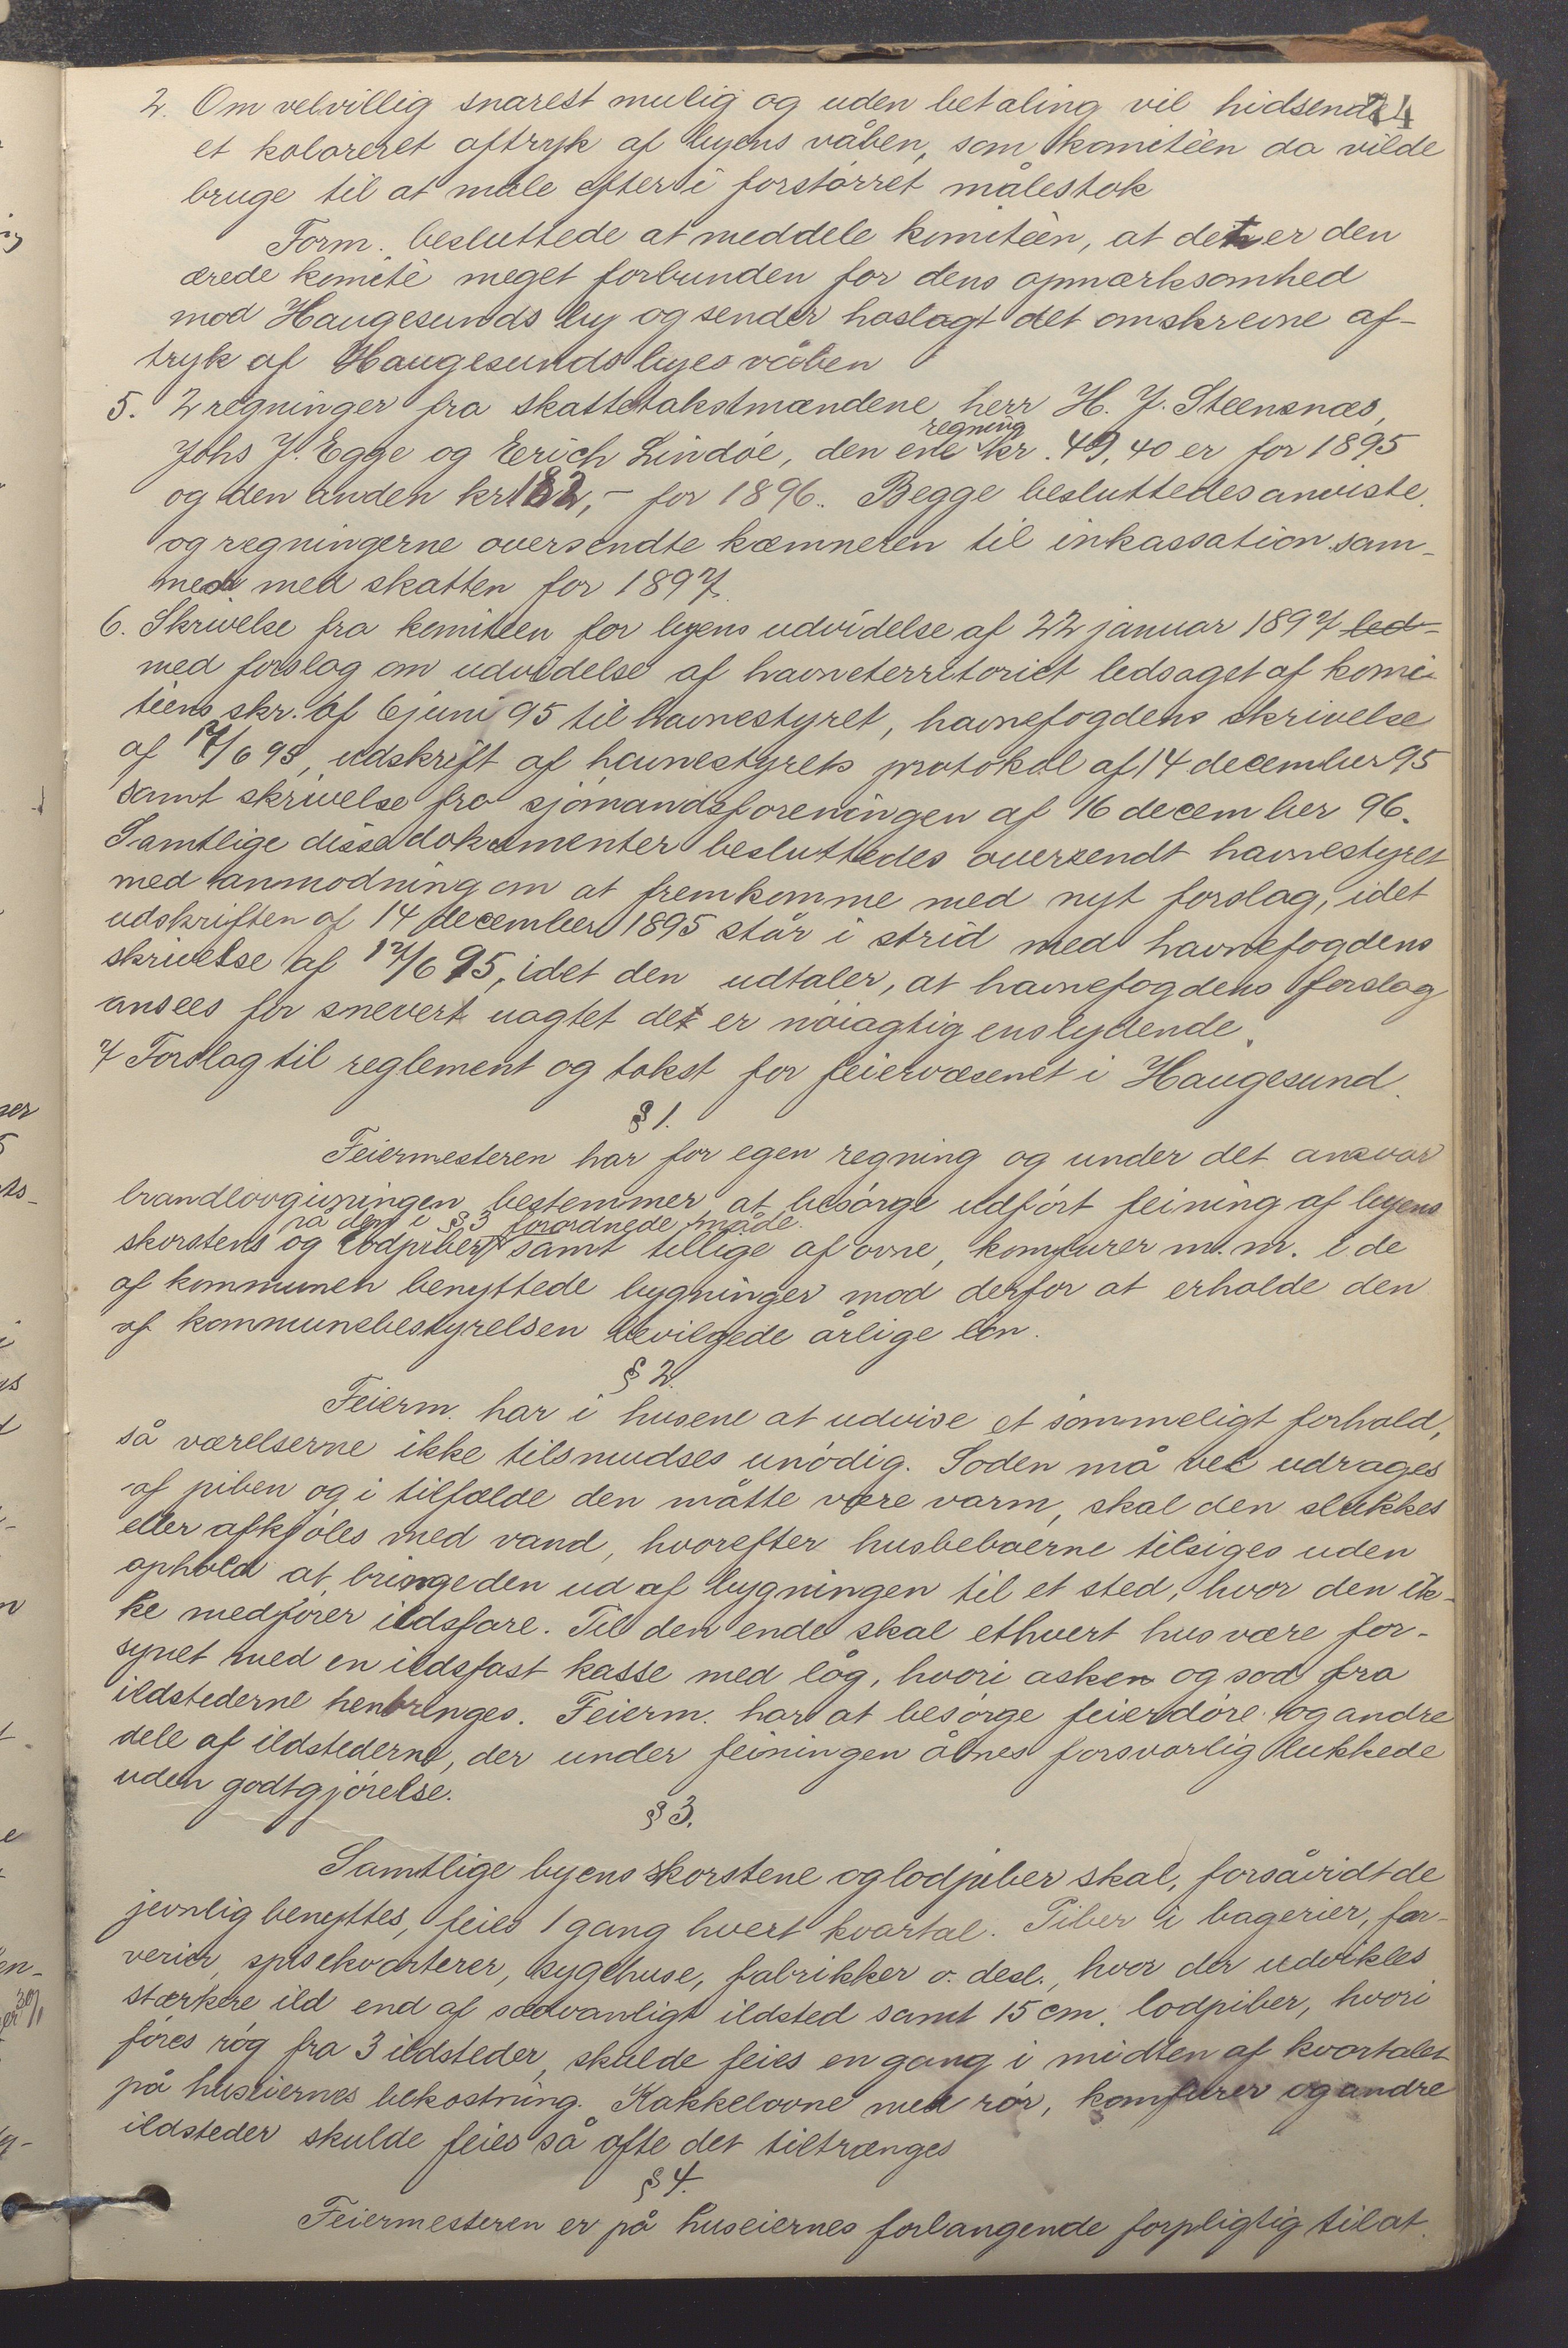 74
2. Om velvillig snarest mulig og uden betaling vil hidsende
et koloreret aftryk af byens våben, som komitéen da vilde
bruge til at male efter i forstørret målestok
Form. besluttede at meddele komitéen, at det er den
ærede komité meget forbunden for dens opmærksomhed
mod Haugesunds by og sender hoslagt det omskrevne af-
tryk af Haugesunds byes våben
5. 2 regninger fra skattetakstmændene herr H. J. Steensnæs,
regning
Johs J. Egge og Erich Lindøe, den ene kr. 49,40 er for 1895
og den anden kr 182,- for 1896. Begge besluttedes anviste
og regningerne oversendte kæmneren til inkassation sam-
men med skatten for 1897.
6. Skrivelse fra komitéen for byens udvidelse af 22 januar 1897 led-
med forslag om udvidelse af havneterritoriet ledsaget af komi-
téens skr. af 6 juni 95 til havnestyret, havnefogdens skrivelse
af 17/6 95, udskrift af havnestyrets protokol af 14 december 95
samt skrivelse fra sjømandsforeningen af 16 december 96.
Samtlige disse dokumenter besluttedes oversendt havnestyret
med anmodning om at fremkomme med nyt forslag, idet
udskriften af 14 december 1895 står i strid med havnefogdens
skrivelse af 17/6 95, idet den udtaler, at havnefogdens forslag
ansees for snevert uagtet det er nøiagtig enslydende.
7 Forslag til reglement og takst for feiervæsenet i Haugesund.
§ 1.
Feiermesteren har for egen regning og under det ansvar
brandlovgivningen bestemmer at besørge udført feining af byens
på den i § 3 forordnede måde.
skorstens og lodpiber samt tillige af ovne, komfurer m.m. i de
af kommunen benyttede bygninger mod derfor at erholde den
af kommunebestyrelsen bevilgede årlige løn.
§ 2.
Feierm. har i husene at udvise et sømmeligt forhold,
så værelserne ikke tilsmudses unødig. Soden må vel udrages
af piben og i tilfælde den måtte være varm, skal den slukkes
eller afkjøles med vand, hvorefter husbeboerne tilsiges uden
ophold at bringe den ud af bygningen til et sted, hvor den ik-
ke medfører ildsfare. Til den ende skal ethvert hus være for-
synet med en ildsfast kasse med låg, hvori asken og sod fra
ildstederne henbringes. Feierm. har at besørge feierdøre og andre
dele af ildstederne, der under feiningen åbnes forsvarlig lukkede
uden godtgjørelse.
§ 3.
Samtlige byens skorstene og lodpiber skal, forsåvidt de
jevnlig benyttes, feies 1 gang hvert kvartal. Piber i bagerier, far-
verier, spisekvarterer, sygehuse, fabrikker o. desl., hvor der udvikles
stærkere ild end af sædvanligt ildsted samt 15 cm. lodpiber, hvori
føres røg fra 3 ildsteder, skulde feies en gang i midten af kvartalet
på huseiernes bekostning. Kakkelovne med rør, komfurer og andre
ildsteder skulde feies så ofte det tiltrænges
§ 4.
Feiermesteren er på huseiernes forlangende forpligtig til at